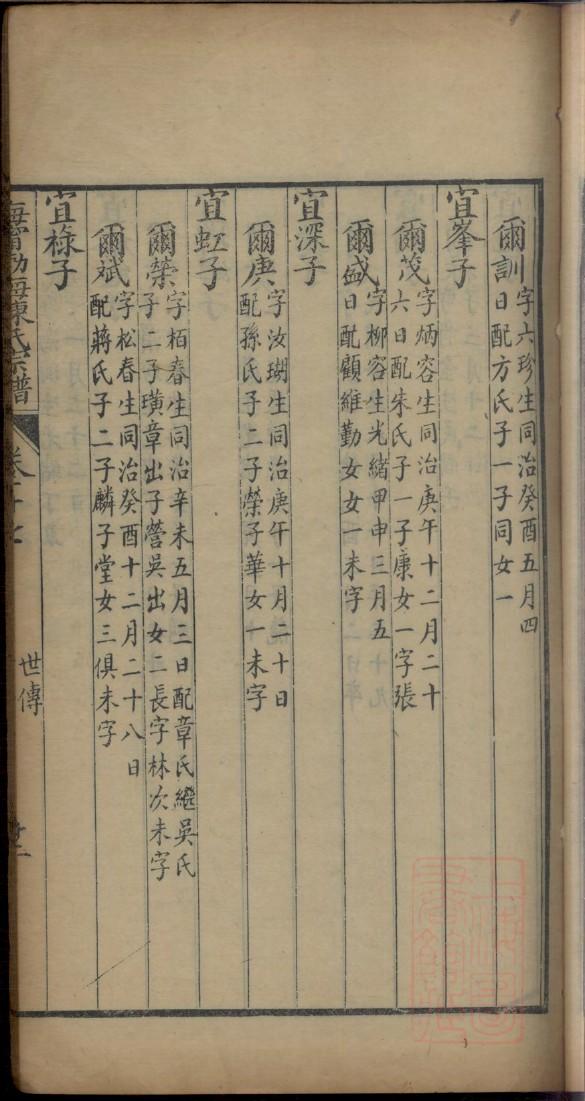 爾訓
字六珍生同治癸酉五月四
日配方氏子一子同女一
宜峯子
爾茂
字炳容生同治庚午十二月二十
六日配朱氏子一子康女一字張
爾盛
字柳容生光緒甲申三月五
日配顧維勤女女一未字
宜深子
爾庚
字汝瑚生同治庚午十月二十日
配孫氏子二子榮子華女一未字
宜虹子
爾榮
字栢春生同治辛未五月三日配章氏繼吳氏
子二子璜章出子營吳出女二長字林次未字
爾斌
字松春生同治癸酉十二月二十八日
配蔣氏子二子麟子堂女三俱未字
宜祿子
陳氏宗譜
世傳